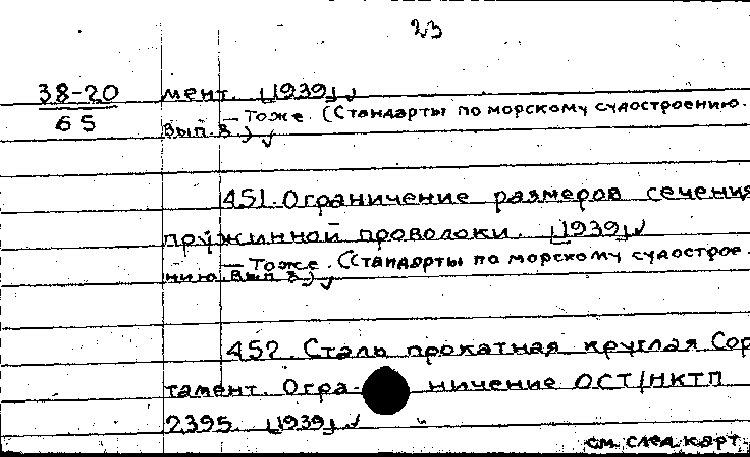 23
38-20 мент. [1939] ✓
65 — Тоже. (Стандарты по морскому судостроению.
Вып. 3.) ✓
451. Ограничение размеров сечения
пружинной проволоки. [1939] ✓
— Тоже. (Стандарты по морскому судострое-
нию. Вып. 3.) ✓
452. Сталь прокатная круглая Сор
тамент. Огра- ничение ОСТ/НКТП
2395. [1939] ✓
см. след. карт.